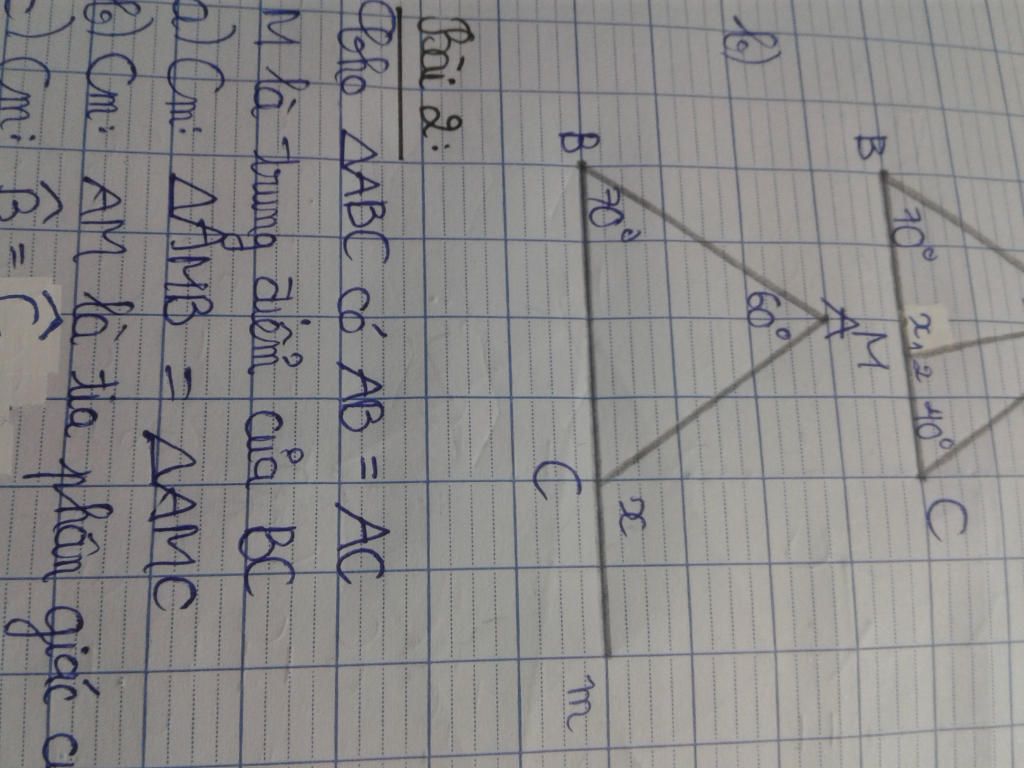 B 70° x 1 2 40° C
M
b)
A
60°
B 70° x
C m
Bài 2:
Cho ΔABC có AB = AC
M là trung điểm của BC
a) Cm: ΔAMB = ΔAMC
b) Cm: AM là tia phân giác
c) Cm: B̂ = Ĉ